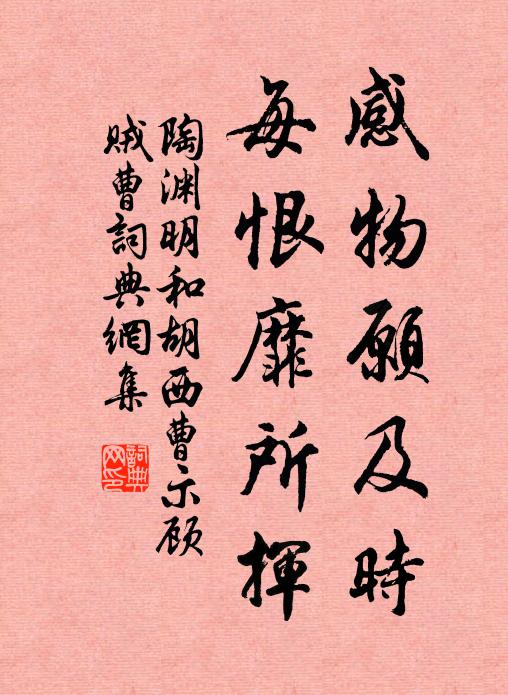 感物願及時
每恨靡所揮
陶淵明和胡西曹示顾
賊曹詞典網集
詞典
网印